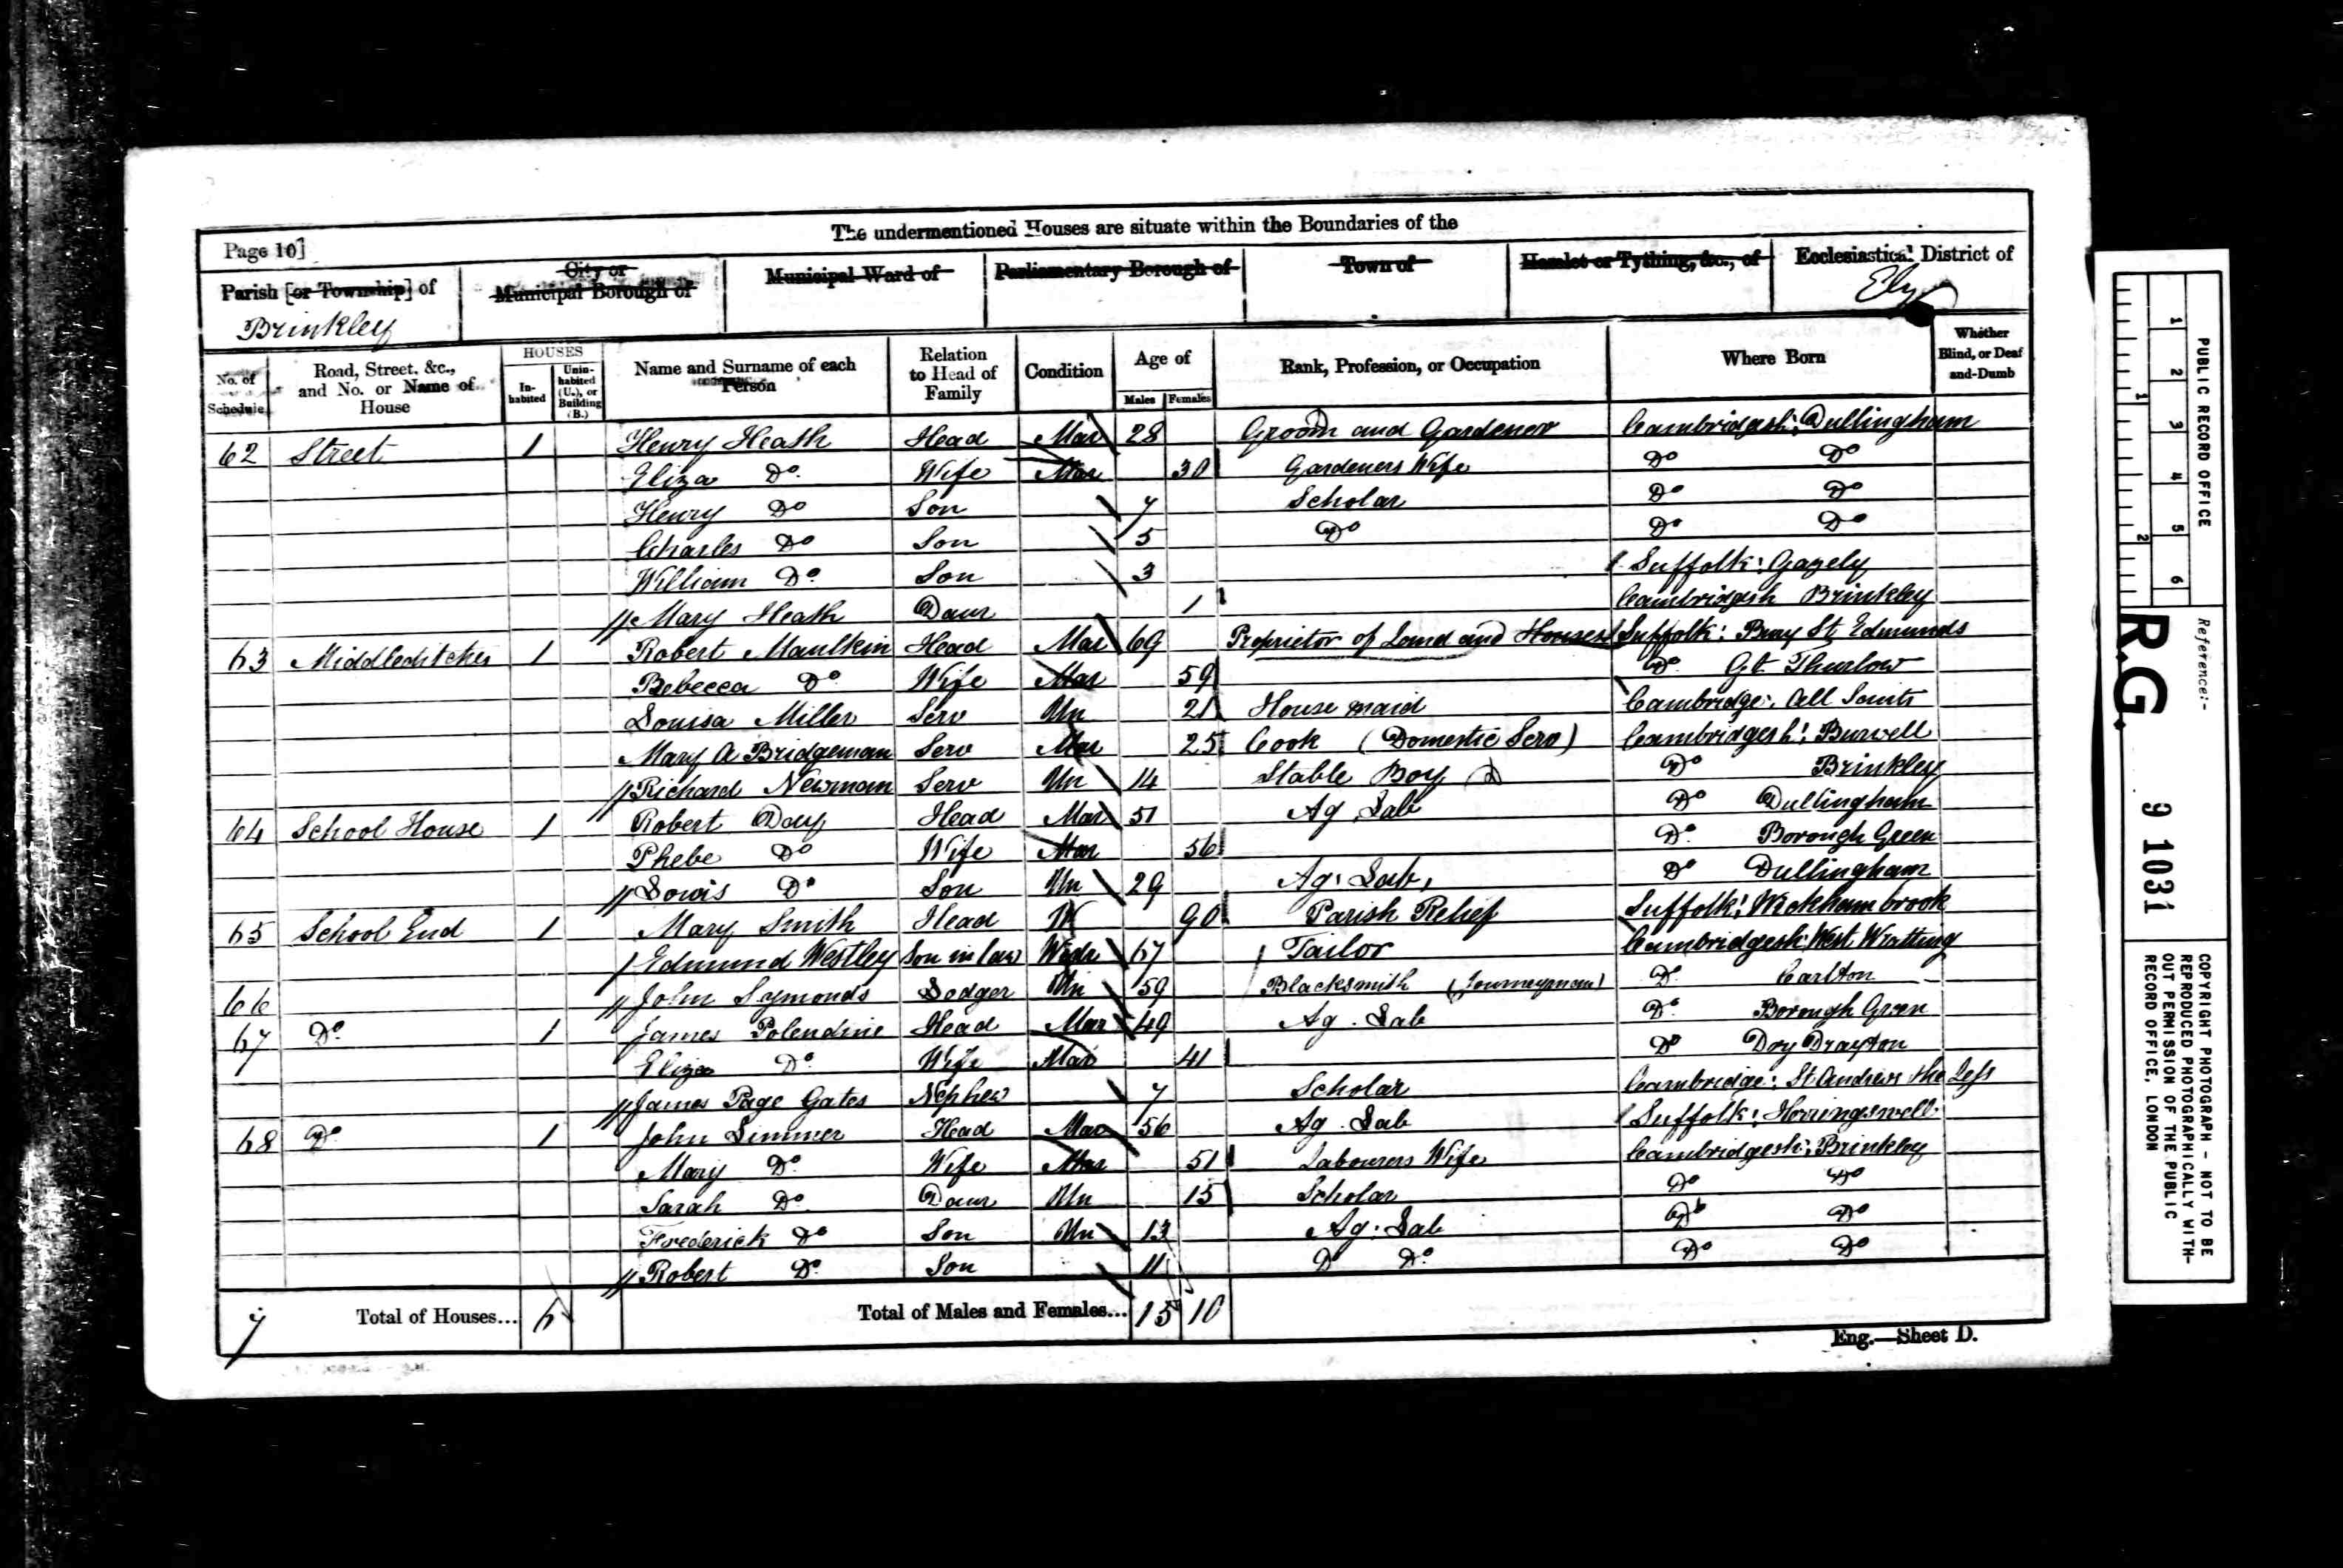 The undermentioned Houses are situate within the Boundaries of the
Page 10]
Parish [or Township] of
Brinkley
City or
Municipal Borough of
Municipal Ward of
Parliamentary Borough of
Town of
Hamlet or Tything, &c., of
Ecclesiastical District of
Ely
No. of Schedule
Road, Street, &c., and No. or Name of House
HOUSES
Inhabited
Uninhabited (U.), or Building (B.)
Name and Surname of each Person
Relation to Head of Family
Condition
Age of
Males
Females
Rank, Profession, or Occupation
Where Born
Whether Blind, or Deaf-and-Dumb
62 Street 1 Henry Heath Head Mar 28 Groom and Gardener Cambridgesh: Dullingham
Eliza Do. Wife Mar 30 Gardeners Wife Do Do
Henry Do Son 7 Scholar Do Do
Charles Do Son 5 Do Do Do
William Do. Son 3 Suffolk: Gazely
Mary Heath Daur 1 Cambridgesh Brinkley
63 Middleditches 1 Robert Maulkin Head Mar 69 Proprietor of Land and Houses Suffolk: Bury St Edmunds
Rebecca Do. Wife Mar 59 Do. Gt. Thurlow
Louisa Miller Serv Un 21 House maid Cambridge: All Saints
Mary A Bridgeman Serv Mar 25 Cook (Domestic Serv) Cambridgesh: Burwell
Richard Newman Serv Un 14 Stable Boy D Do Brinkley
64 School House 1 Robert Day Head Mar 51 Ag. Lab Do Dullingham
Phebe Do Wife Mar 56 Do. Borough Green
Lowis Do Son Un 29 Ag: Lab, Do Dullingham
65 School End 1 Mary Smith Head W 90 Parish Relief Suffolk: Wickhambrook
Edmund Westley Son in law Widr 67 Tailor Cambridgesh: West Wratting
66 John Symonds Lodger Un 59 Blacksmith (Journeyman) Do. Carlton
67 Do. 1 James Polendine Head Mar 49 Ag. Lab Do. Borough Green
Eliza Do. Wife Mar 41 Do Dry Drayton
James Page Gates Nephew 7 Scholar Cambridge: St Andrews the Less
68 Do. 1 John Simmer Head Mar 56 Ag. Lab Suffolk: Herringswell
Mary Do. Wife Mar 51 Labourers Wife Cambridgesh: Brinkley
Sarah Do. Daur Un 15 Scholar Do Do
Frederick Do Son Un 13 Ag: Lab Do Do
Robert Do. Son 11 Do Do. Do Do
7 Total of Houses... 5 Total of Males and Females... 15 10
Eng.—Sheet D.
PUBLIC RECORD OFFICE
1 2 3 4 5 6
1 2
Reference:-
R.G. 9 1031
COPYRIGHT PHOTOGRAPH - NOT TO BE
REPRODUCED PHOTOGRAPHICALLY WITH-
OUT PERMISSION OF THE PUBLIC
RECORD OFFICE, LONDON